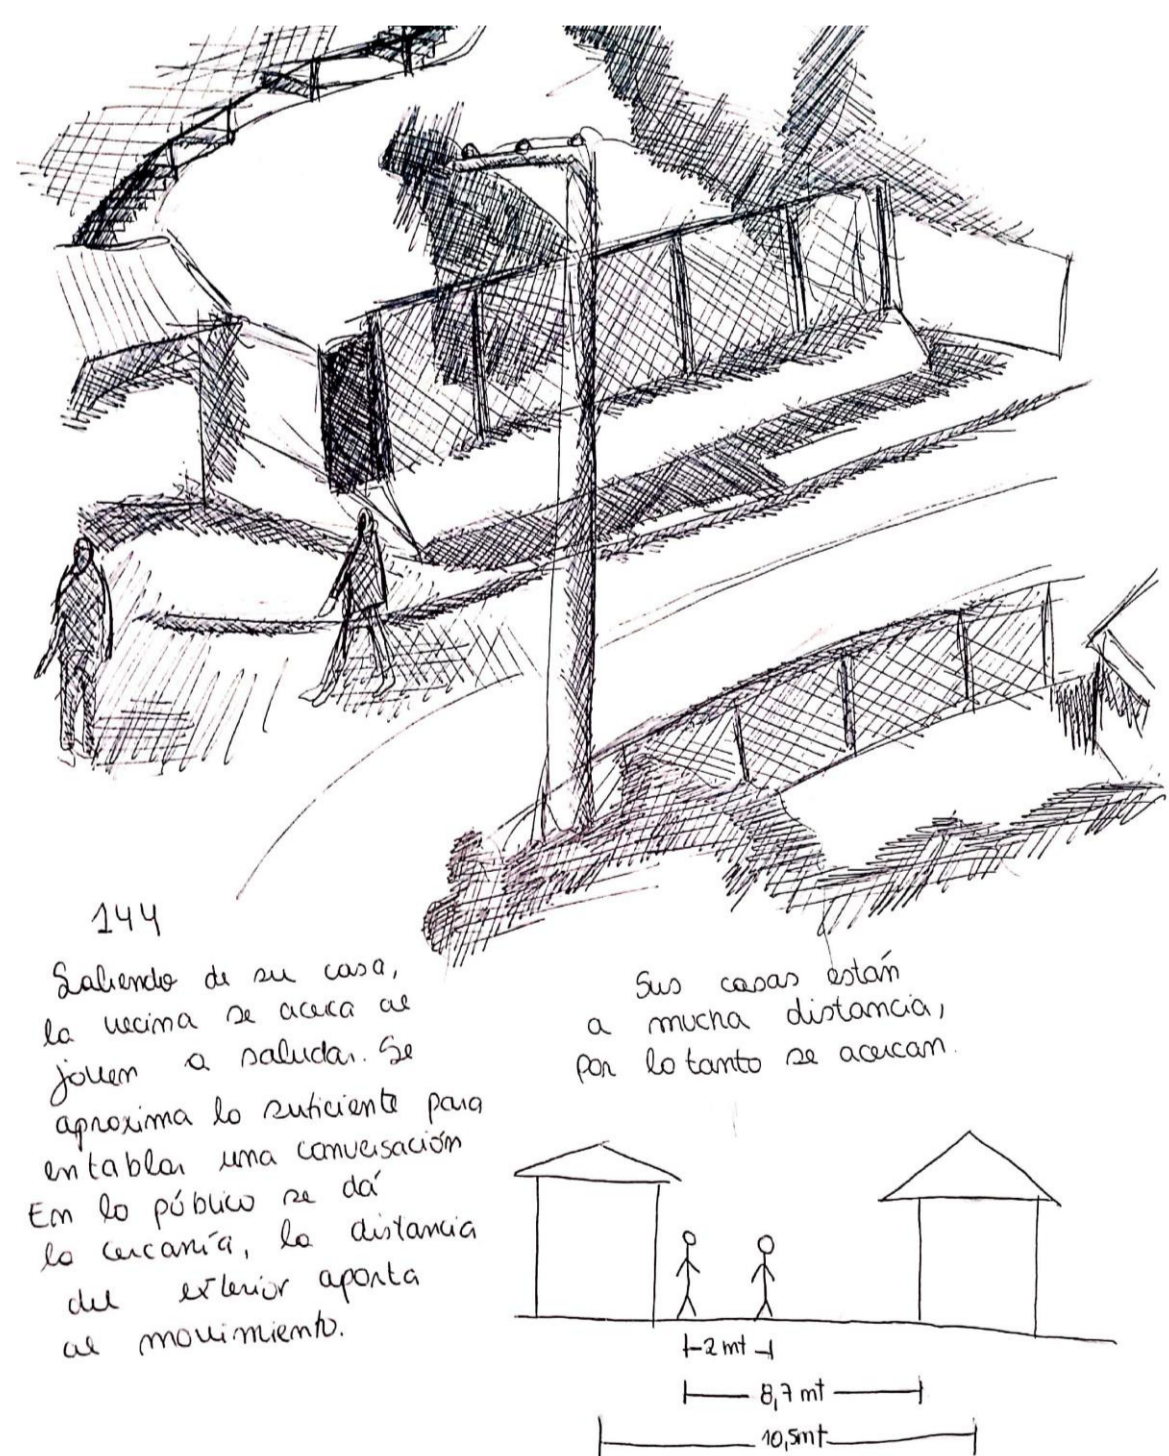 144
Saliendo de su casa,
la vecina se acerca al
joven a saludar. Se
aproxima lo suficiente para
entablar una conversación
En lo público se dá
la cercanía, la distancia
del exterior aporta
al movimiento.
Sus casas están
a mucha distancia,
por lo tanto se acercan.
2 mt
8,7 mt
10,5mt